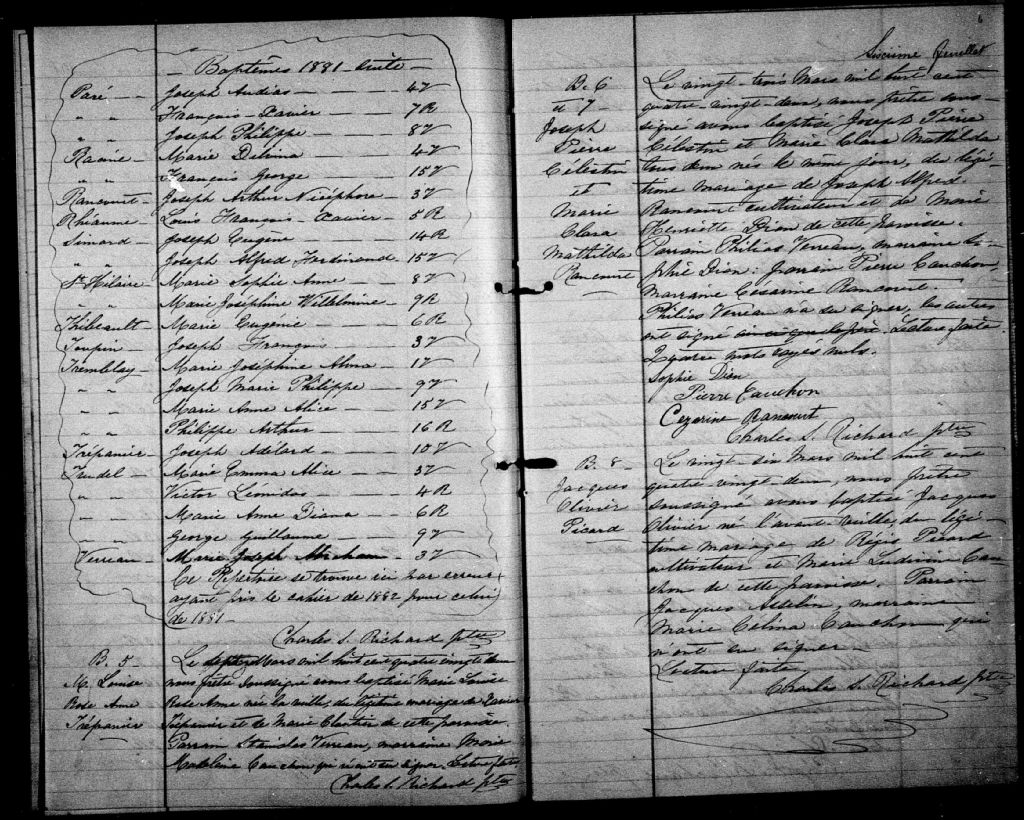 Baptêmes 1881 Suite
Paré Joseph Audias 4V
" " François-Xavier 7R
" Joseph Philippe 8V
Racine Marie Délvina 4V
" " François George 15V
Rancourt Joseph Arthur Nicéphore 3V
Rhéaume Louis François-Xavier 5R
Simard Joseph Eugène 14R
" " Joseph Alfred Ferdinand 15V
St Hilaire Marie Sophie Anne 8V
" " Marie Joséphine Wilhelmine 9R
Thibeault Marie Eugénie 6R
Toupin Joseph François 3V
Tremblay Marie Joséphine Alma 1V
" " Joseph Marie Philippe 9V
" " Marie Anne Alice 15V
" " Philippe Arthur 16R
Trépanier Joseph Adélard 10V
Trudel Marie Emma Alice 3V
" " Victor Léonidas 4R
" " Marie Anne Diana 6R
" " George Guillaume 9V
Verreau Marie Joseph Abraham 3V
Ce Répertoire se trouve ici par erreur
ayant pris le cahier de 1882 pour celui
de 1881
Charles S. Richard ptre
B. 5
M. Louise
Rose Anne
Trépanier
Le sept Mars mil huit cent quatre vingt deux
nous prêtre soussigné avons baptisé Marie Louise
Rose Anne née la veille, du légitime mariage de Xavier
Trépanier et de Marie Cloutier de cette paroisse.
Parrain Stanislas Verreau, marraine Marie
Madeleine Cauchon qui n'ont su signer. Lecture faite
Charles S. Richard ptre
6
Sixième feuillet
B. 6
et 7
Joseph
Pierre
Célestin
et
Marie
Clara
Mathilda
Rancourt
Le vingt-trois Mars mil huit cent
quatre-vingt-deux, nous prêtre sous-
signé avons baptisé Joseph Pierre
Célestin et Marie Clara Mathilda
tous deux nés le même jour, du légi-
time mariage de Joseph Alfred
Rancourt cultivateur et de Marie
Henriette Dion de cette paroisse.
Parrain Philias Verreau, marraine So-
phie Dion: parrain Pierre Cauchon,
marraine Césarine Rancourt.
Philias Verreau n'a su signer, les autres
ont signé Lecture faite.
Quatre mots rayés nuls.
Sophie Dion
Pierre Cauchon
Cezarine Rancourt
Charles S. Richard ptre
B. 8
Jacques
Olivier
Picard
Le vingt six Mars mil huit cent
quatre vingt-deux, nous prêtre
soussigné avons baptisé Jacques
Olivier né l'avant veille, du légi-
time mariage de Régis Picard
cultivateur et Marie Ludivine Cau-
chon de cette paroisse. Parrain
Jacques Asselin, marraine
Marie Celina Cauchon qui
n'ont su signer
Lecture faite
Charles S. Richard ptre